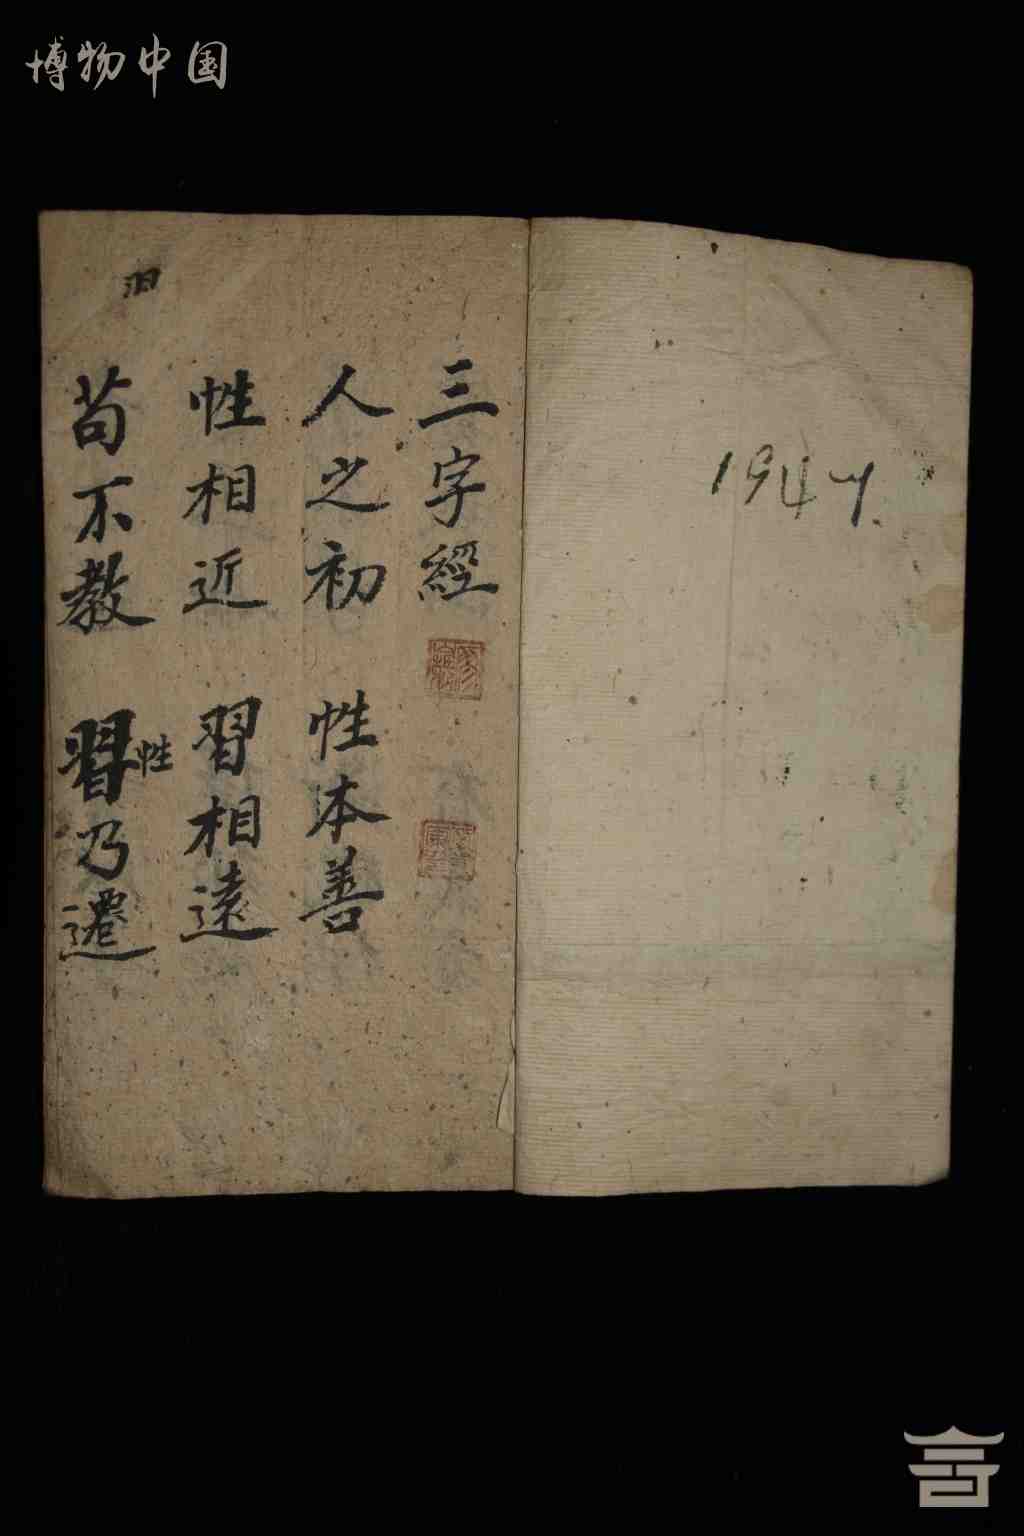 博物中国
1947.
三字經
人之初 性本善
性相近 習相遠
苟不教 習乃遷
性